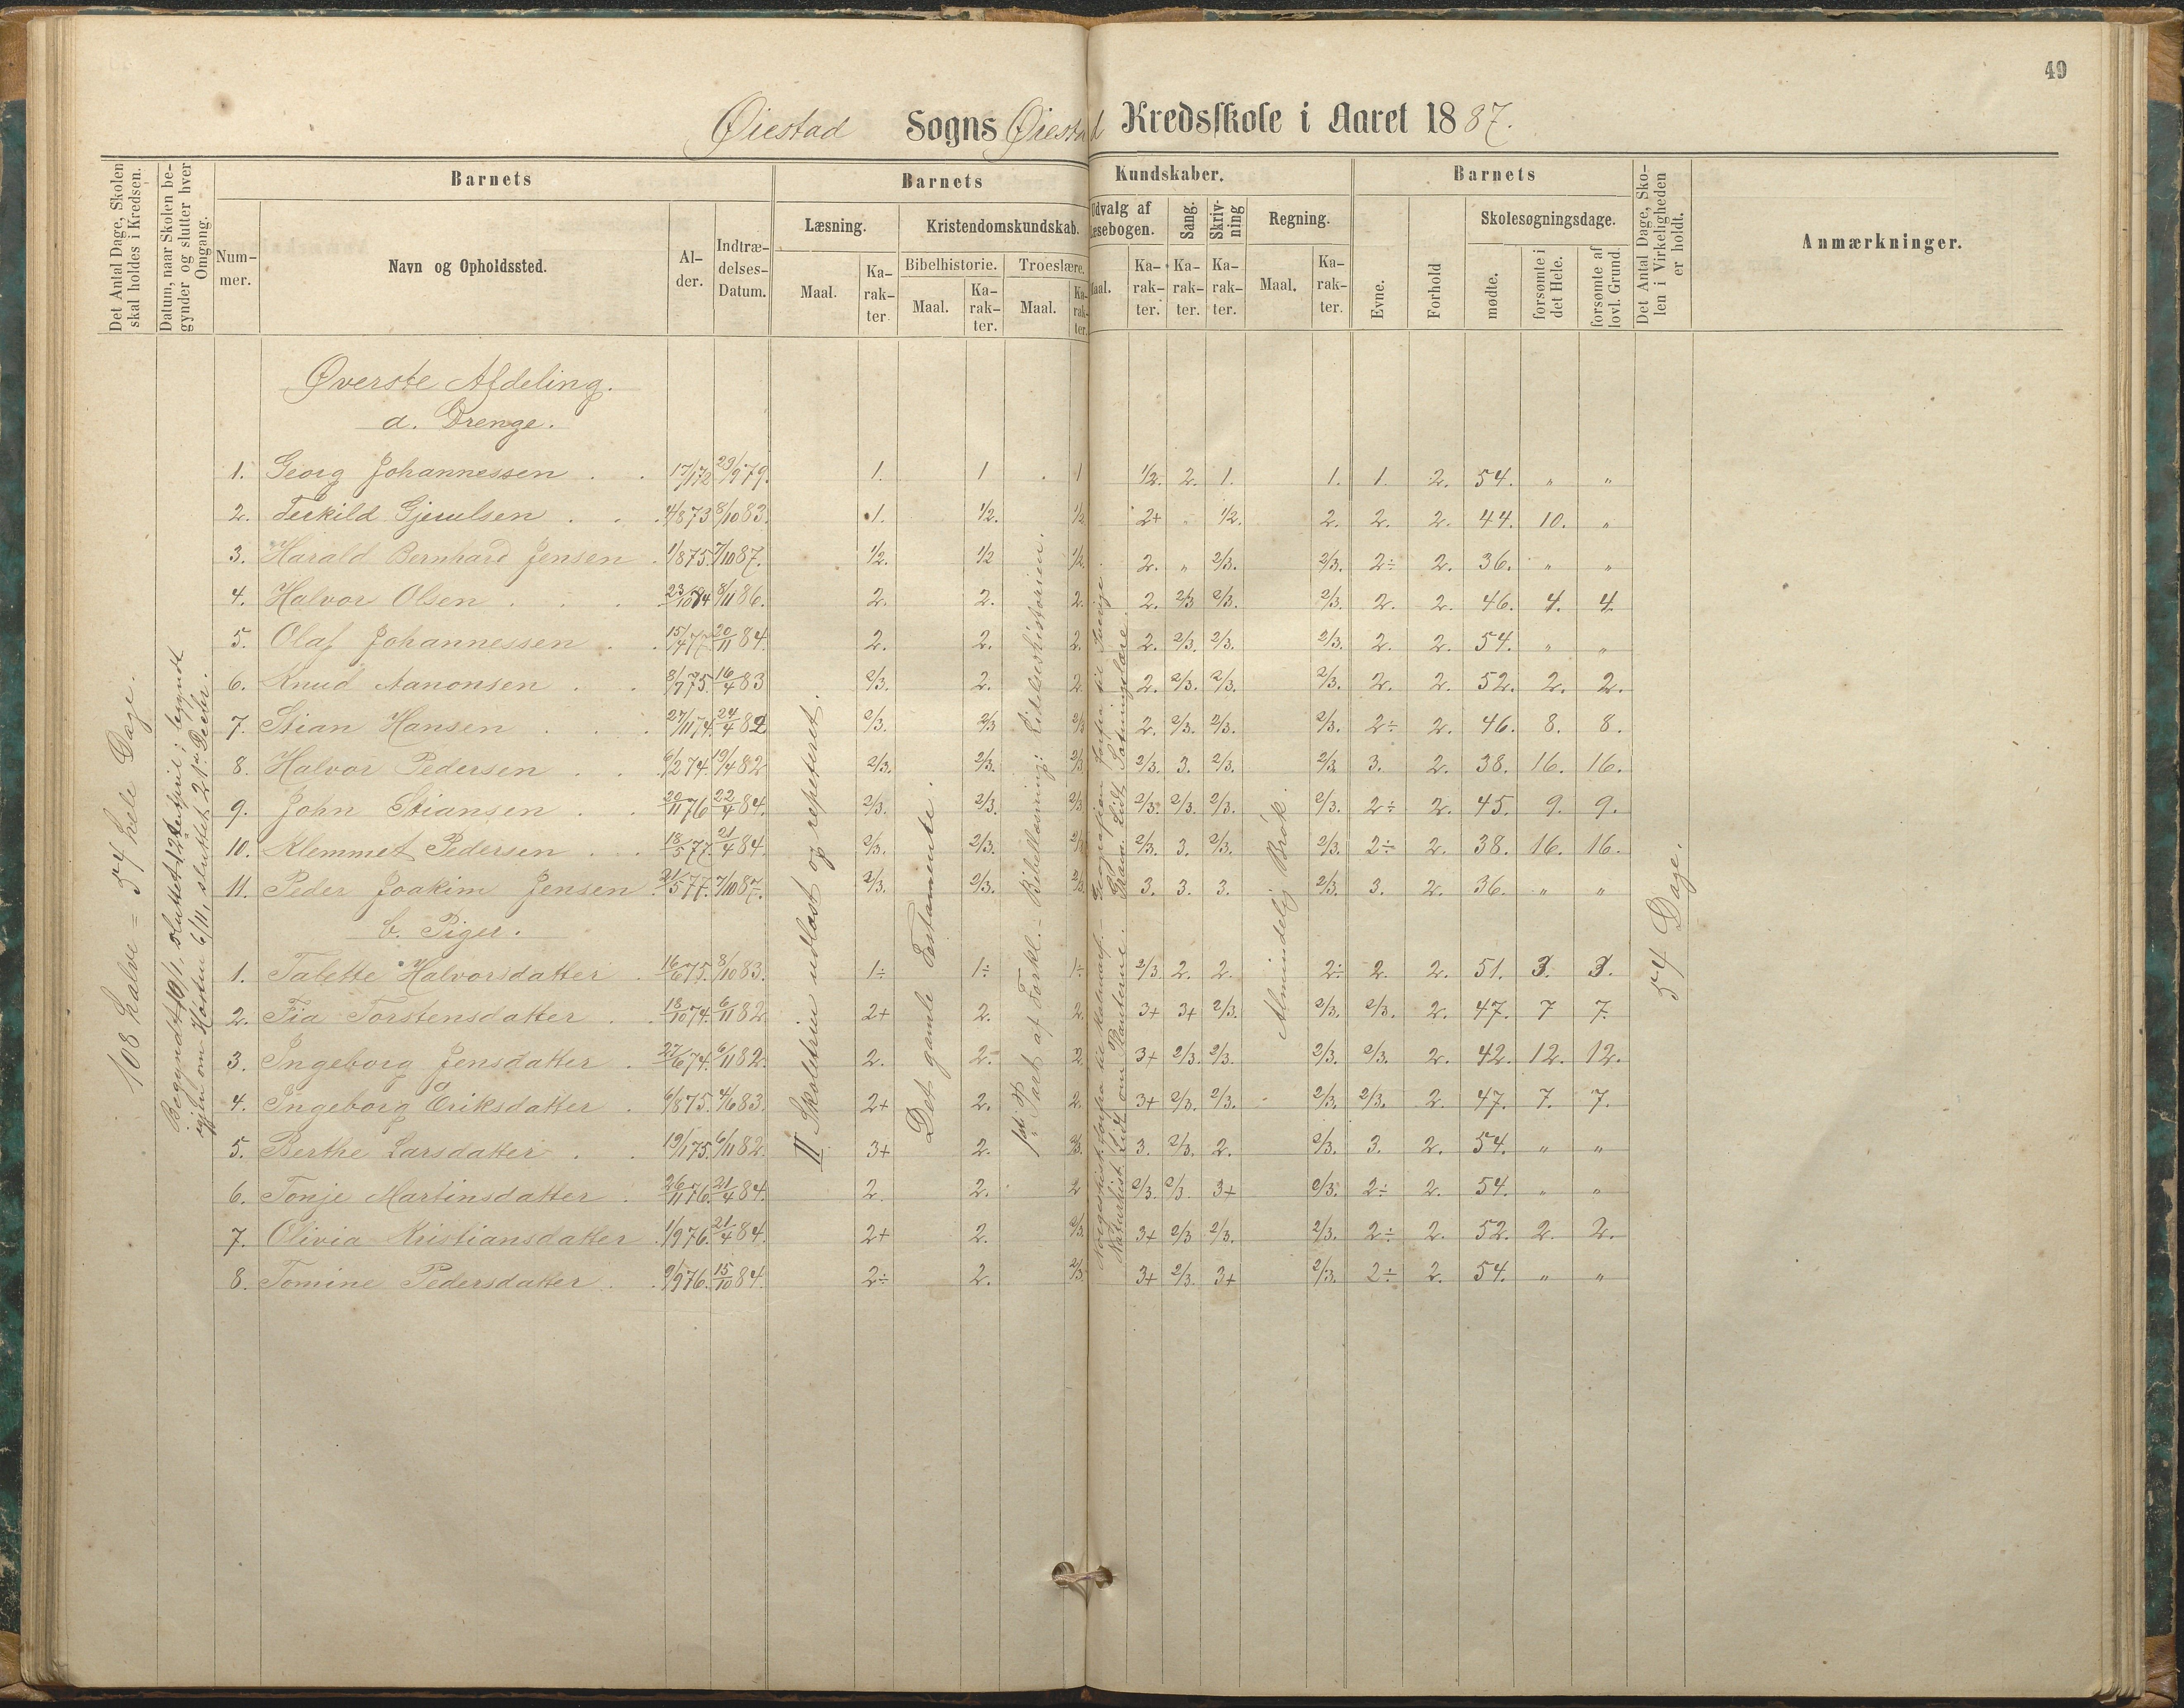 49
Øiestad Sogns Øiestad Kredsskole i Aaret 1887.
Det Antal Dage, Skolen skal holdes i Kredsen.
Datum, naar Skolen begynder og slutter hver Omgang.
Barnets
Barnets Kundskaber.
Barnets
Det Antal Dage, Skolen i Virkeligheden er holdt.
Anmærkninger.
Nummer.
Navn og Opholdssted.
Alder.
Indtrædelses-Datum.
Læsning.
Kristendomskundskab.
Udvalg af Læsebogen.
Sang.
Skrivning
Regning.
Evne.
Forhold
Skolesøgningsdage.
Bibelhistorie.
Troeslære.
Maal.
Karakter.
Maal.
Karakter.
Maal.
Karakter.
Maal.
Karakter.
Karakter.
Karakter.
Maal.
Karakter.
mødte.
forsømte i det Hele.
forsømte af lovl. Grund.
108 halve = 54 hele Dage.
Begyndt 10/1, sluttet 12te April; begyndt
igjen om Høsten 6/11, sluttet 21de Decbr.
II Skoletrin udlæst og repeteret.
Det gamle Testamente.
1ste Part af Forkl. – Bibellæsning: Lidelseshistorien.
Naturhist. Lidt om Planterne.
Almindelig Brøk.
54 Dage.
Øverste Afdeling.
a. Drenge.
1. Georg Johannessen . . 17/1 72 23/9 79. 1. 1 1 1/2. 2. 1. 1. 1. 2. 54. " "
2. Terkild Gjerulsen . . 4/8 73 8/10 83. 1. 1/2. 1/2 2+ " 1/2. 2. 2. 2. 44. 10. "
3. Harald Bernhard Jensen . 1/8 75. 7/10 87. 1/2. 1/2 1/2. 2. " 2/3. 2/3. 2÷ 2. 36. " "
4. Halvor Olsen . . . 23/10 74 8/11 86. 2. 2. 2. 2. 2/3 2/3. 2/3. 2. 2. 46. 4. 4.
5. Olaf Johannessen . . 15/4 77 20/11 84. 2. 2. 2. 2. 2/3. 2/3. 2/3. 2. 2. 54. " "
6. Knud Aanonsen . . 8/7 75. 16/4 83 2/3. 2. 2. 2. 2/3. 2/3. 2/3. 2. 2. 52. 2. 2.
7. Stian Hansen . . . 27/11 74. 24/4 82 2/3. 2/3 2/3 2. 2/3. 2/3. 2/3. 2÷ 2. 46. 8. 8.
8. Halvor Pedersen . . 6/2 74. 19/4 82 2/3. 2/3. 2/3. 2/3. 3. 2/3. 2/3. 3. 2. 38. 16. 16.
9. John Stiansen . . 20/11 76 22/4 84. 2/3. 2/3. 2/3. 2/3. 2/3. 2/3. 2/3. 2÷ 2. 45. 9. 9.
10. Klemmet Pedersen . . 18/5 77. 21/4 84. 2/3. 2/3. 2/3 2/3. 3. 2/3. 2/3. 2÷ 2. 38. 16. 16.
11. Peder Joakim Jensen . 21/5 77. 7/10 87. 2/3. 2/3. 2/3. 3. 3. 3. 2/3. 3. 2. 36. " "
b. Piger.
1. Talette Halvorsdatter . 16/6 75. 8/10 83. 1÷ 1÷ 1÷ 2/3. 2. 2. 2÷ 2. 2. 51. 3. 3.
2. Fia Torstensdatter . . 18/10 74. 6/11 82. 2+ 2. 2. 3+ 3+ 2/3. 2/3. 2/3. 2. 47. 7 7.
3. Ingeborg Jensdatter . 27/6 74. 6/11 82. 2. 2. 2. 3+ 2/3. 2/3. 2/3. 2/3. 2. 42. 12. 12.
4. Ingeborg Eriksdatter . 6/8 75. 4/6 83. 2+ 2. 2. 3+ 2/3. 2/3. 2/3. 2/3. 2. 47. 7. 7.
5. Berthe Larsdatter . . 19/1 75. 6/11 82. 3+ 2. 2/3. 3. 2/3. 2. 2/3. 3. 2. 54. " "
6. Tonje Martinsdatter . 26/11 76. 21/4 84. 2. 2. 2 2/3. 2/3. 3+ 2/3. 2÷ 2. 54. " "
7. Olivia Kristiansdatter . 1/9 76. 21/4 84. 2+ 2. 2/3. 3+ 2/3 2/3. 2/3. 2÷ 2. 52. 2. 2.
8. Tomine Pedersdatter . . 9/9 76. 15/10 84. 2÷ 2. 2/3. 3+ 2/3. 3+ 2/3. 2÷ 2. 54. " "